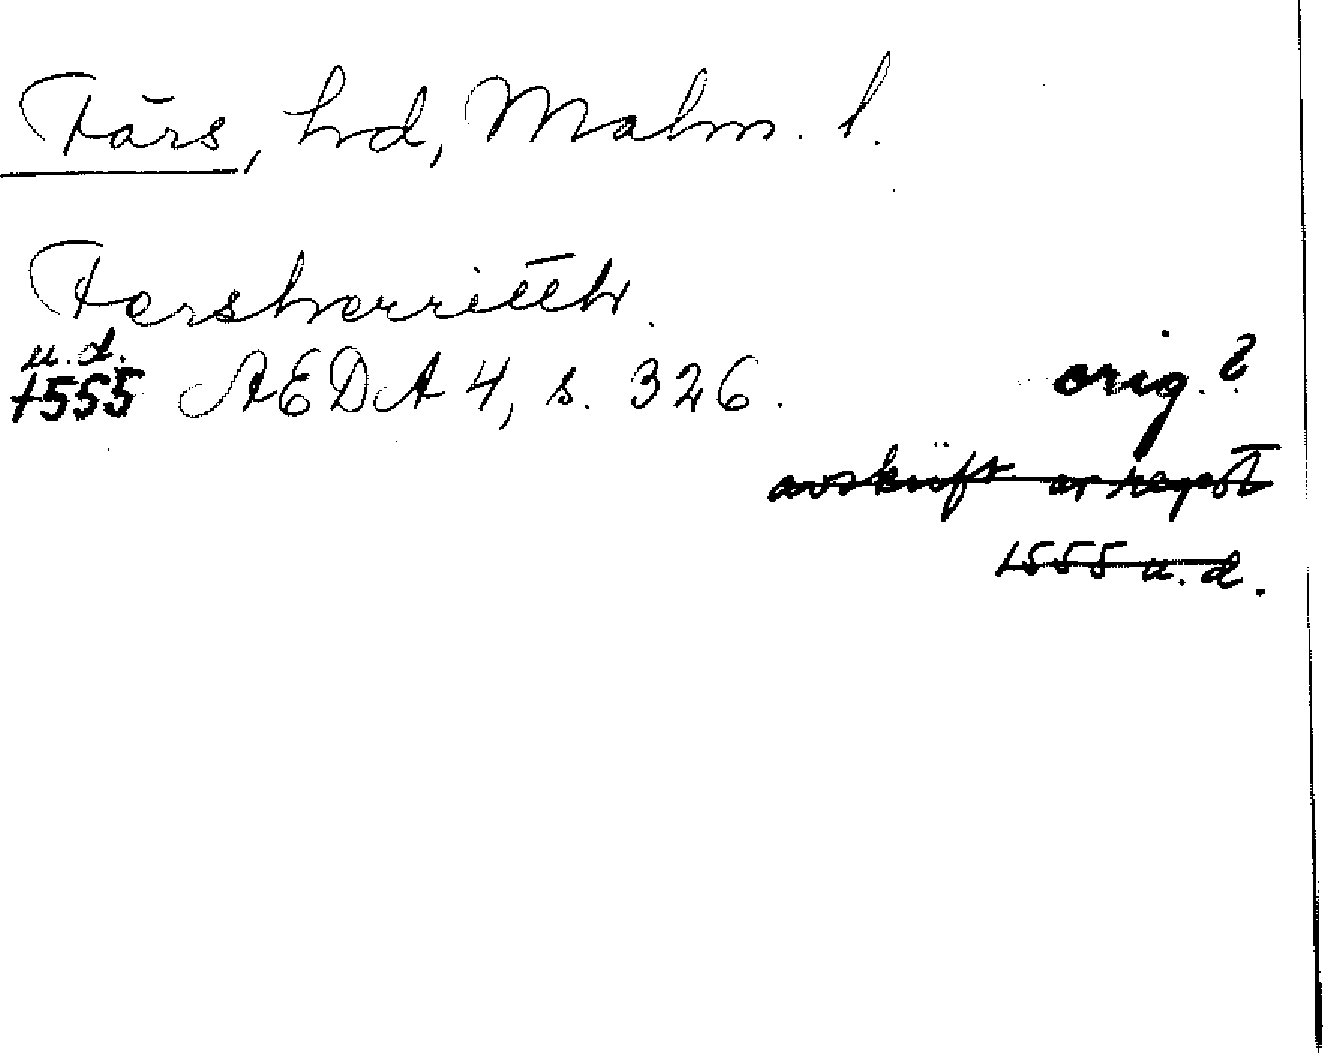 Färs, hd, Malm. l.
Fersherritth.
u.d.
1555 AEDA 4, s. 326. orig.?
avskrift av regest
1555 u.d.